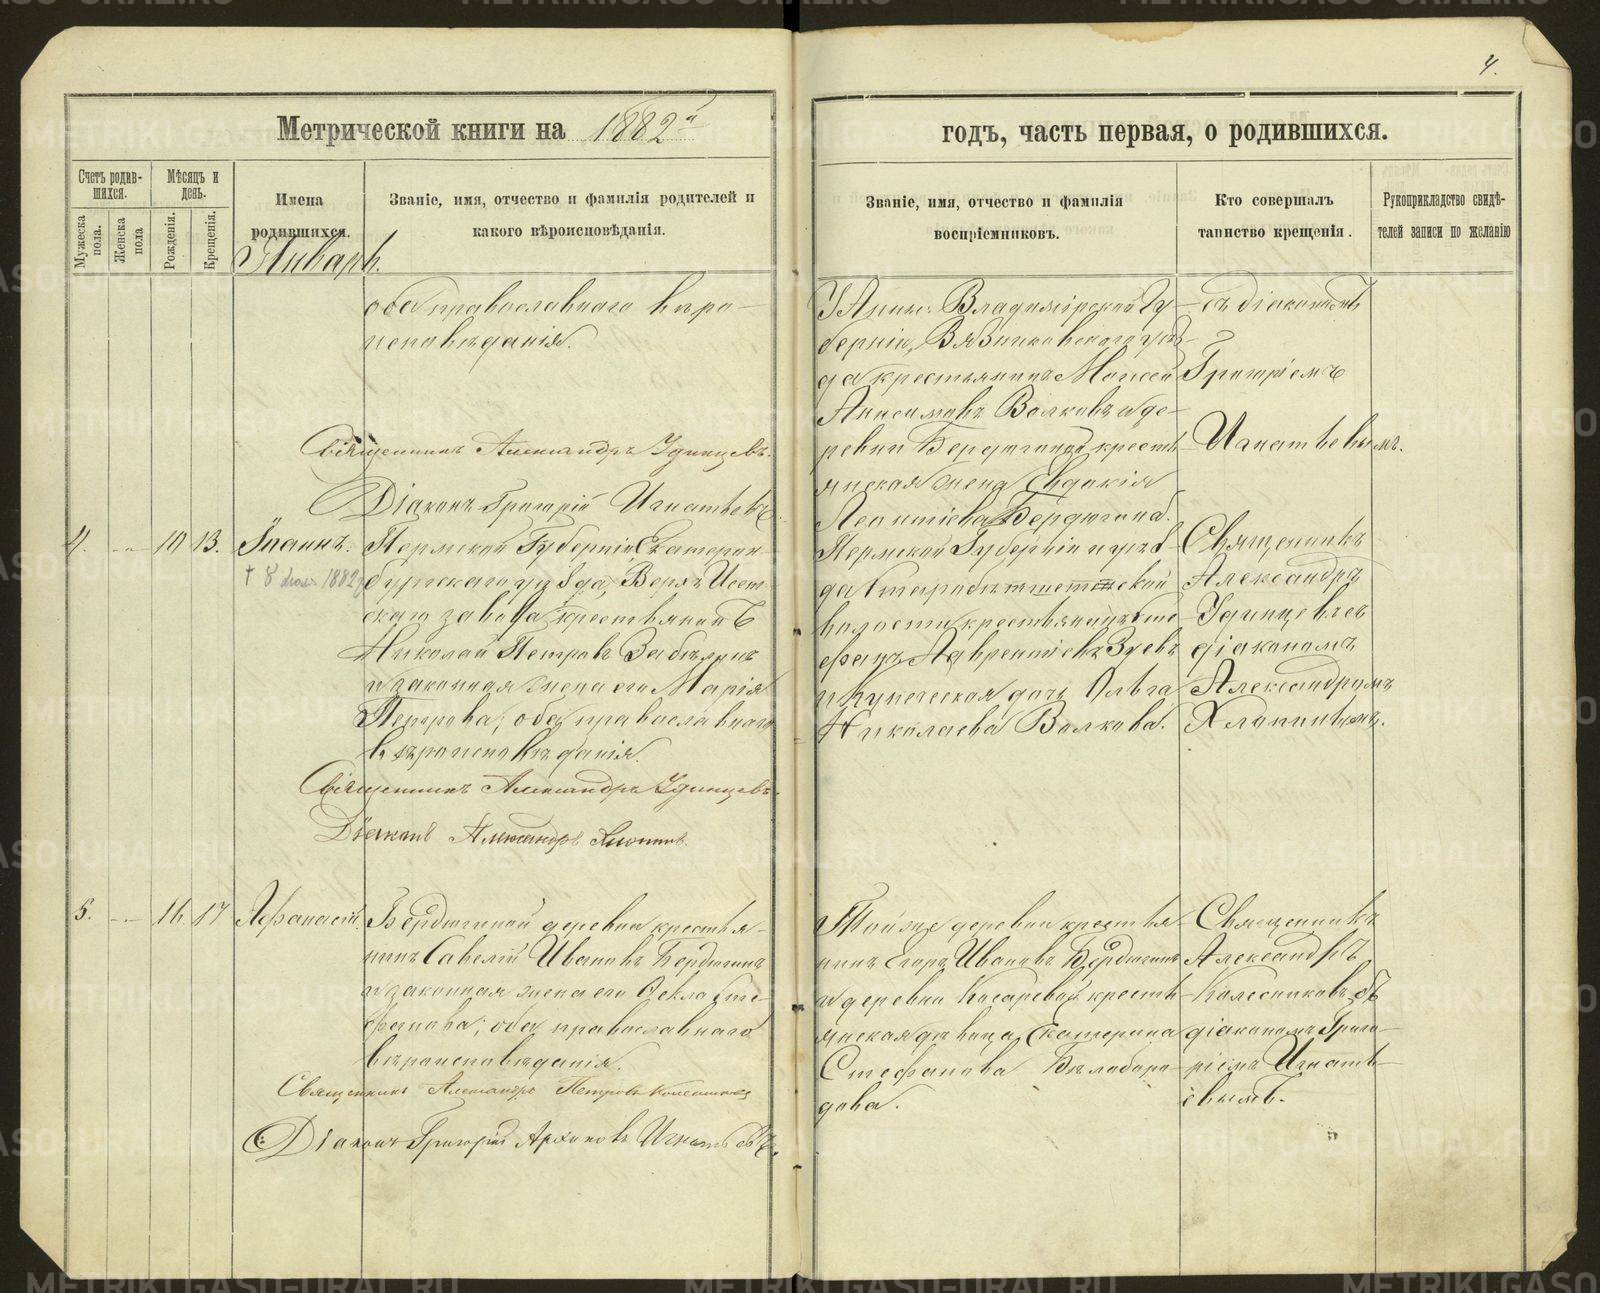 4.
Метрической книги на 1882й
годъ, часть первая, о родившихся.
Счетъ родив-
шихся.
Мужеска пола.
Женска пола
Мѣсяцъ и день.
Рожденія.
Крещенія.
Имена
родившихся.
Званіе, имя, отчество и фамилія родителей и
какого вѣроисповѣданія.
Званіе, имя, отчество и фамилія
воспріемниковъ.
Кто совершалъ
таинство крещенія.
Рукоприкладство свидѣ-
телей записи по желанію
Январь.
оба православнаго вѣро-
исповѣданія.
Священникъ Александръ Удинцевъ.
Діаконъ Григорій Игнатьевъ
Владимірской Гу-
берніи, Вязниковскаго уѣз-
да крестьянинъ Моисей
Анисимовъ Волковъ и де-
ревни Бердюгиной кресть-
янская жена Евдокія
Леонтіева Бердюгина.
съ діакономъ
Григоріемъ
Игнатьевымъ.
4. 10 13. Іоаннъ.
† 8 1882
Пермской Губерніи Екатерин-
бургскаго уѣзда, Верхъ Исет-
скаго завода крестьянинъ
Николай Петровъ Забѣлинъ
и законная жена его Марія
Петрова; оба православнаго
вѣроисповѣданія.
Священникъ Александръ Удинцевъ.
Діаконъ Александръ Хлопинъ.
Пермской Губерніи и уѣз-
да
волости крестьянинъ Сте-
фанъ Лаврентіевъ Зуевъ
и Купеческая дочь Ольга
Николаева Волкова.
Священникъ
Александръ
Удинцевъ съ
діакономъ
Александромъ
Хлопинымъ.
5. 16. 17 Афанасій.
Бердюгиной деревни крестья-
нинъ Савелій Ивановъ Бердюгинъ
и законная жена его Ѳекла Сте-
фанова; оба православнаго
вѣроисповѣданія.
Священникъ Александръ Петровъ Колесниковъ
Діаконъ Григорій Архиповъ Игнатьевъ.
Той же деревни крестья-
нинъ Егоръ Ивановъ Бердюгинъ
и деревни Косаревой кресть-
янская дѣвица Екатерина
Стефанова Бѣлоборо-
дова.
Священникъ
Александръ
Колесниковъ съ
діакономъ Григо-
ріемъ Игнать-
евымъ.
METRIKI.GASO-URAL.RU